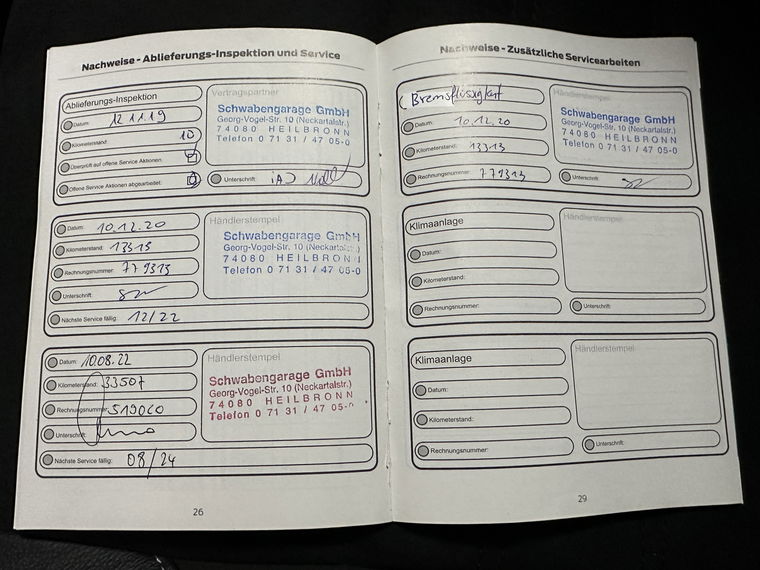 Nachweise - Ablieferungs-Inspektion und Service
Ablieferungs-Inspektion
Datum: 12.11.19
Kilometerstand: 10
Überprüft auf offene Service Aktionen:
Offene Service Aktionen abgearbeitet:
Vertragspartner
Schwabengarage GmbH
Georg-Vogel-Str. 10 (Neckartalstr.)
74080 HEILBRONN
Telefon 0 71 31 / 47 05-0
Unterschrift:
Datum: 10.12.20
Kilometerstand: 13313
Rechnungsnummer: 779313
Unterschrift:
Nächste Service fällig: 12/22
Händlerstempel
Schwabengarage GmbH
Georg-Vogel-Str. 10 (Neckartalstr.)
74080 HEILBRONN
Telefon 0 71 31 / 47 05-0
Datum: 10.08.22
Kilometerstand: 33507
Rechnungsnummer: 519060
Unterschrift:
Nächste Service fällig: 08/24
Händlerstempel
Schwabengarage GmbH
Georg-Vogel-Str. 10 (Neckartalstr.)
74080 HEILBRONN
Telefon 0 71 31 / 47 05-0
26
Nachweise - Zusätzliche Servicearbeiten
Bremsflüssigkeit
Datum: 10.12.20
Kilometerstand: 13313
Rechnungsnummer: 779313
Händlerstempel
Schwabengarage GmbH
Georg-Vogel-Str. 10 (Neckartalstr.)
74080 HEILBRONN
Telefon 0 71 31 / 47 05-0
Unterschrift:
Klimaanlage
Datum:
Kilometerstand:
Rechnungsnummer:
Händlerstempel
Unterschrift:
Klimaanlage
Datum:
Kilometerstand:
Rechnungsnummer:
Händlerstempel
Unterschrift:
29